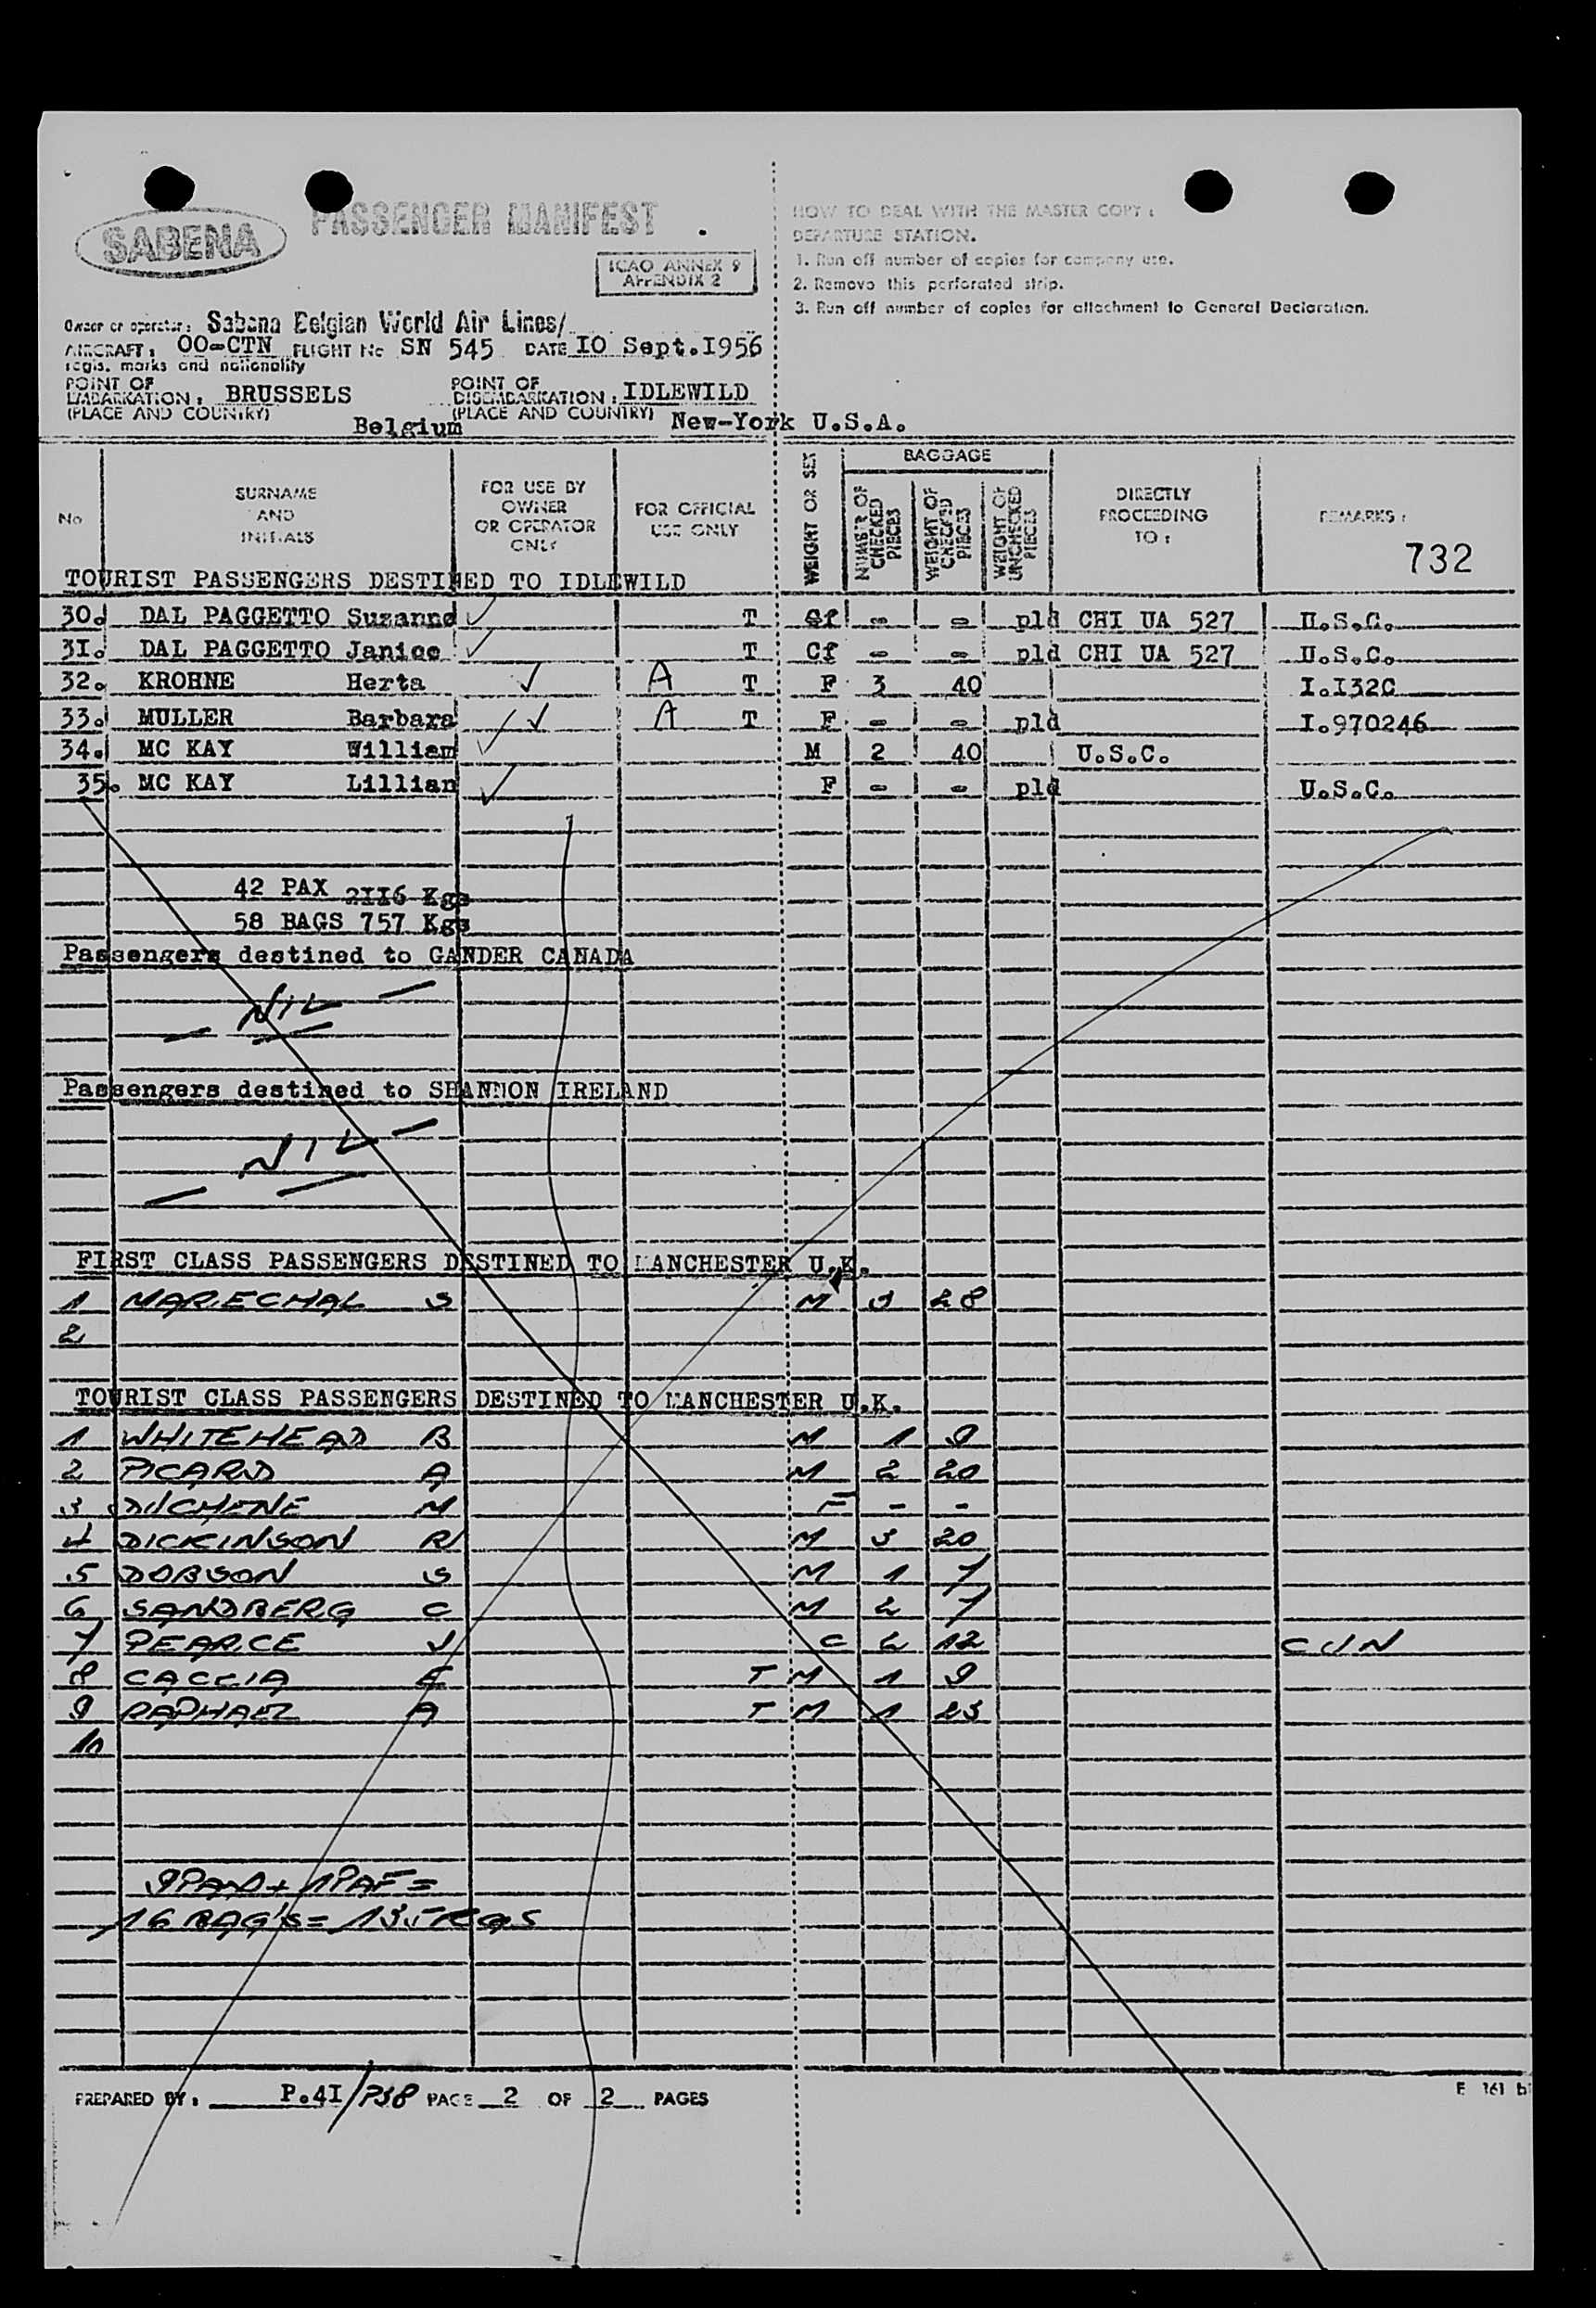 SABENA
PASSENGER MANIFEST
ICAO ANNEX 9
APPENDIX 2
HOW TO DEAL WITH THE MASTER COPY :
DEPARTURE STATION.
1. Run off number of copies for company use.
2. Remove this perforated strip.
3. Run off number of copies for attachment to General Declaration.
Owner or operator: Sabena Belgian World Air Lines/
AIRCRAFT: OO-CTN FLIGHT No SN 545 DATE IO Sept.I956
regis. marks and nationality
POINT OF EMBARKATION: BRUSSELS
(PLACE AND COUNTRY) Belgium
POINT OF DISEMBARKATION: IDLEWILD
(PLACE AND COUNTRY) New-York U.S.A.
No
SURNAME AND INITIALS
FOR USE BY OWNER OR OPERATOR ONLY
FOR OFFICIAL USE ONLY
WEIGHT OR SEX
BAGGAGE
NUMBER OF CHECKED PIECES
WEIGHT OF CHECKED PIECES
WEIGHT OF UNCHECKED PIECES
DIRECTLY PROCEEDING TO :
REMARKS :
732
TOURIST PASSENGERS DESTINED TO IDLEWILD
30. DAL PAGGETTO Suzanne T Cf - - pld CHI UA 527 U.S.C.
3I. DAL PAGGETTO Janice T Cf - - pld CHI UA 527 U.S.C.
32. KROHNE Herta A T F 3 40 I.I320
33. MULLER Barbara A T F - - pld I.970246
34. MC KAY William M 2 40 U.S.C.
35. MC KAY Lillian F - - pld U.S.C.
42 PAX 2II6 Kgs
58 BAGS 757 Kgs
Passengers destined to GANDER CANADA
NIL
Passengers destined to SHANNON IRELAND
NIL
FIRST CLASS PASSENGERS DESTINED TO MANCHESTER U.K.
1 MARECHAL S M 3 28
2
TOURIST CLASS PASSENGERS DESTINED TO MANCHESTER U.K.
1 WHITEHEAD B M 1 9
2 PICARD A M 2 20
3 DUCHENE M F - -
4 DICKINSON R M 3 20
5 DOBSON S M 1 7
6 SANDBERG C M 2 7
7 PEARCE J C 2 12 CUN
8 CACCIA E T M 1 9
9 RAPHAEL A T M 1 23
10
9PAD + 1PAF =
16 BAG'S = 135 KGS
PREPARED BY : P.4I/P38 PAGE 2 OF 2 PAGES
E 161 b